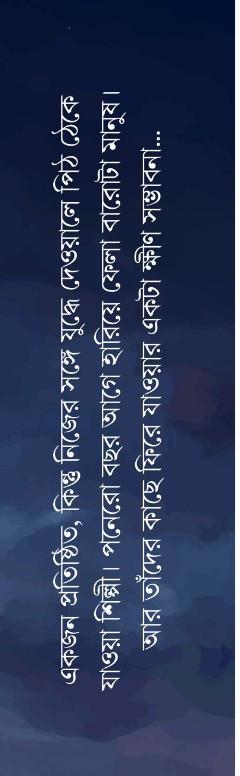 একজন প্রতিষ্ঠিত, কিন্তু নিজের সঙ্গে যুদ্ধে দেওয়ালে পিঠ ঠেকে
যাওয়া শিল্পী। পনেরো বছর আগে হারিয়ে ফেলা বারোটা মানুষ।
আর তাঁদের কাছে ফিরে যাওয়ার একটা ক্ষীণ সম্ভাবনা...